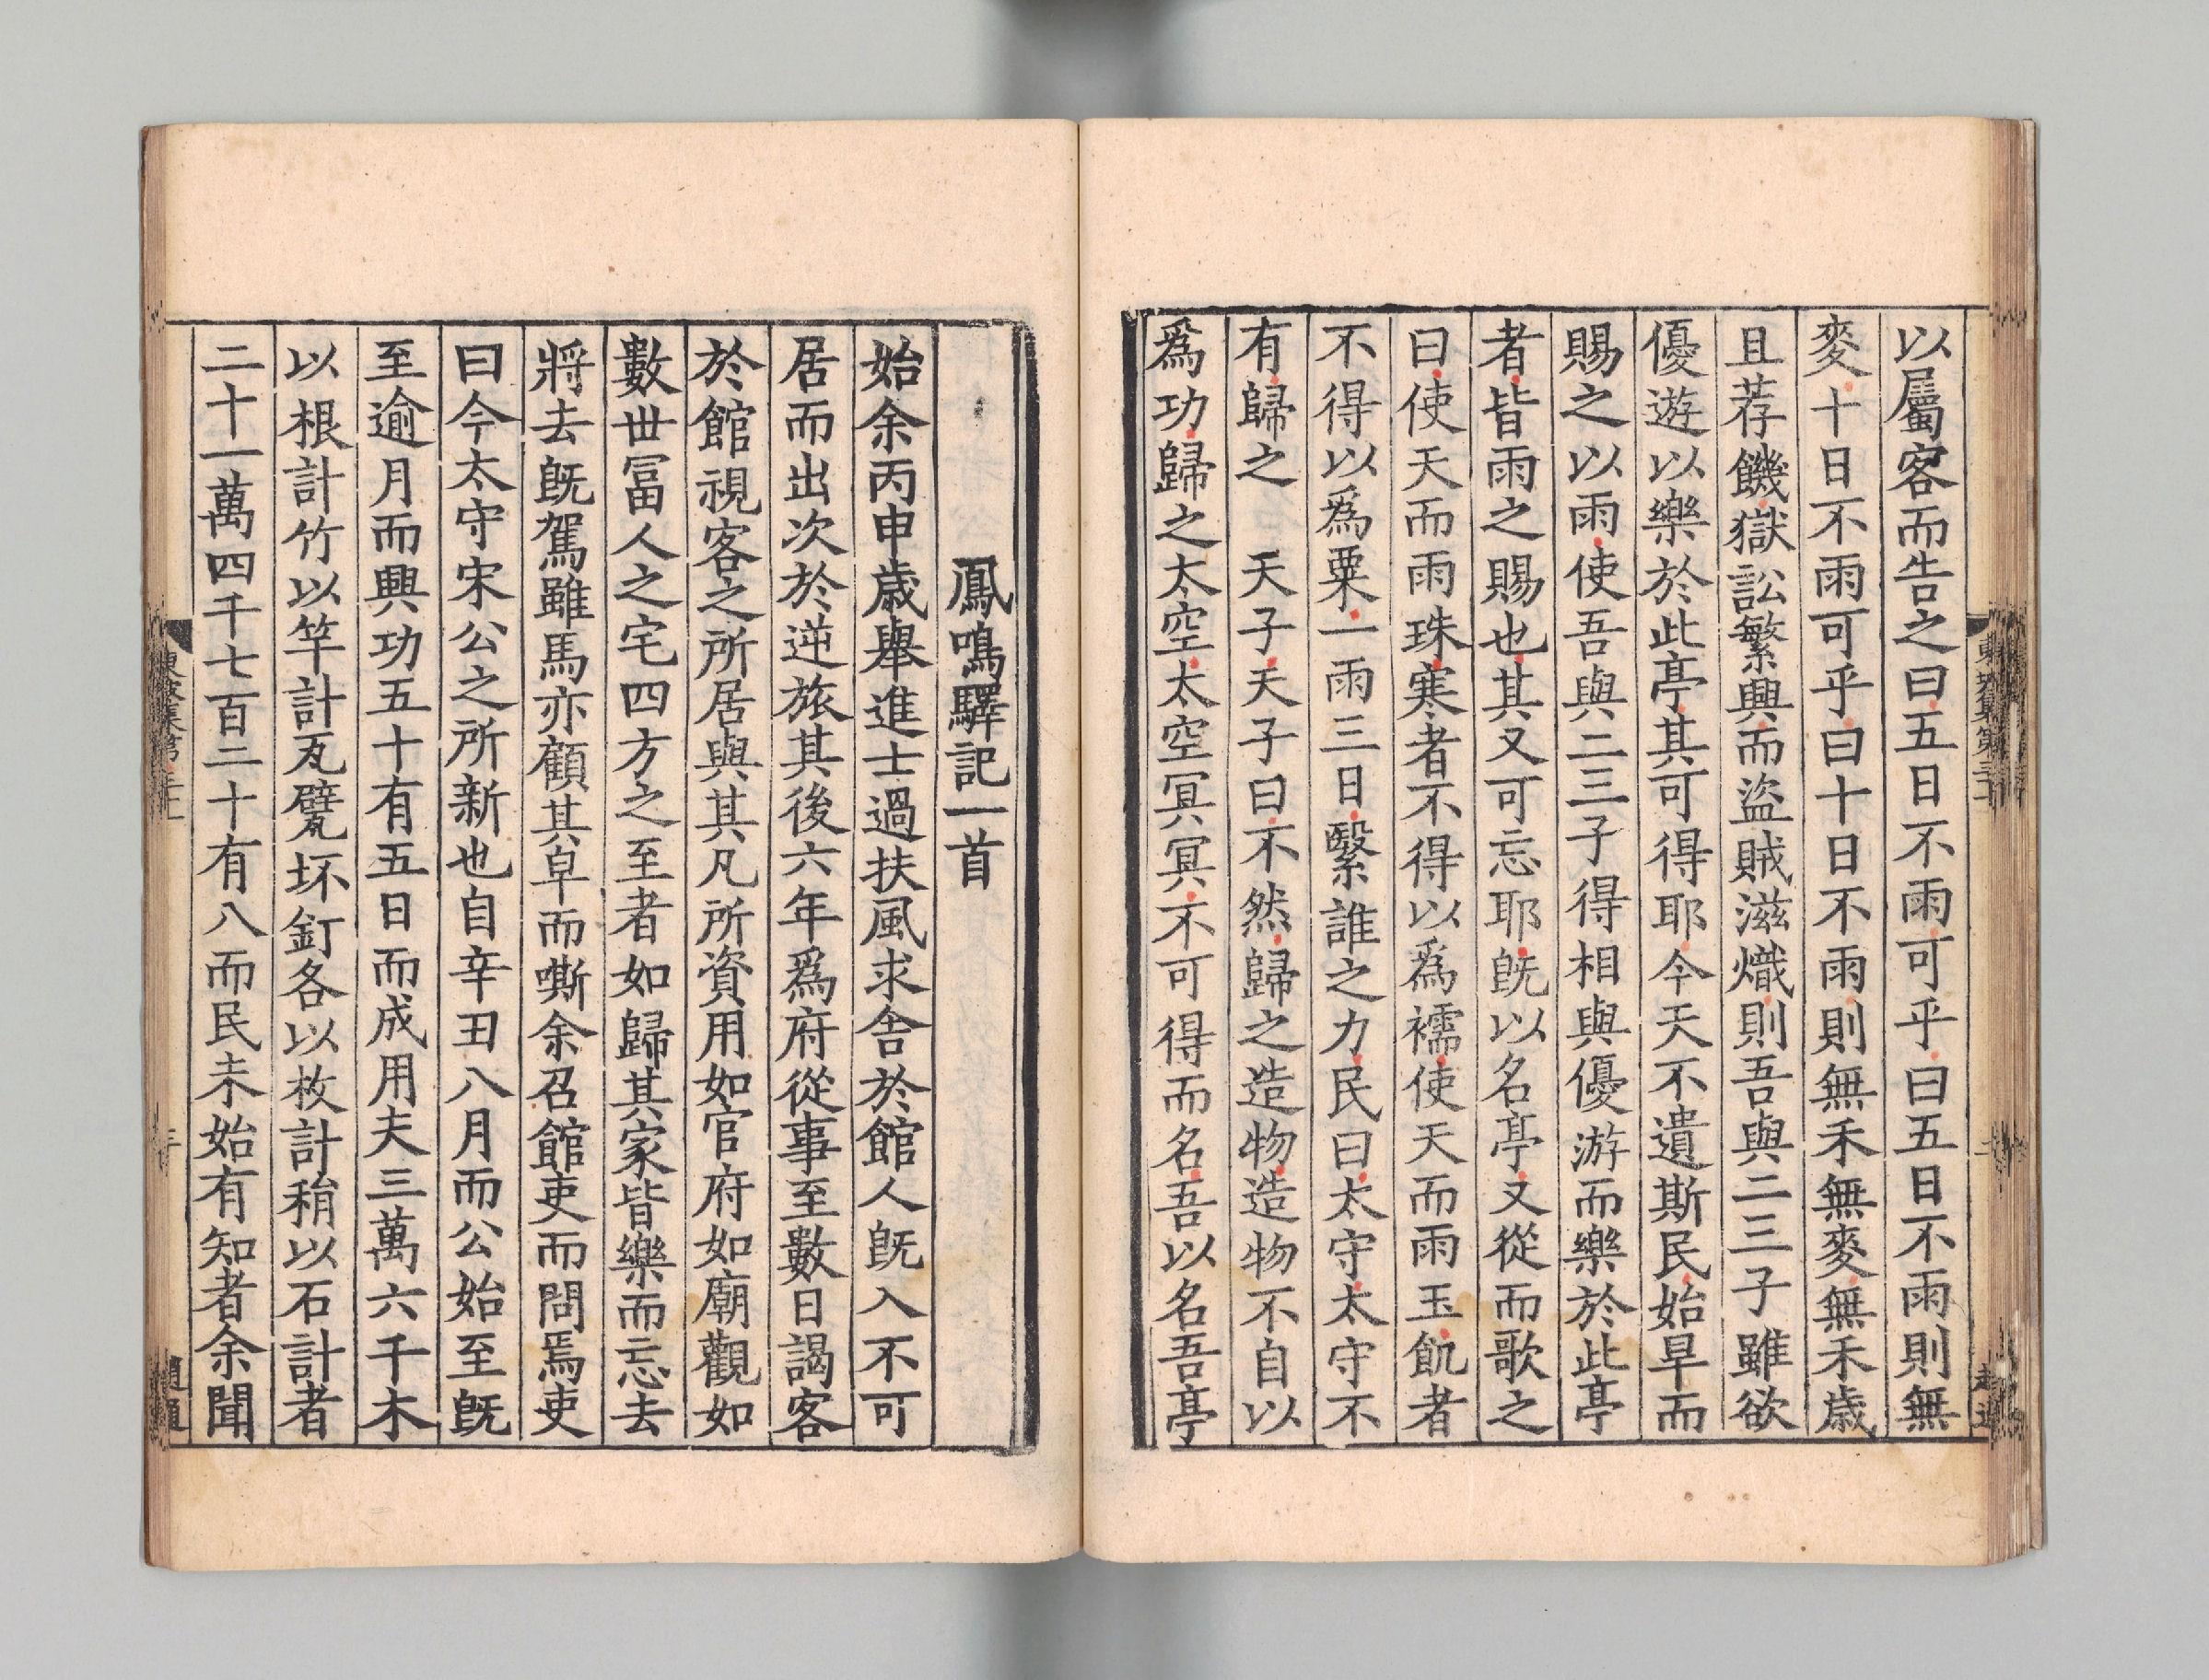 以屬客而告之曰五日不雨可乎曰五日不雨則無
麥十日不雨可乎曰十日不雨則無禾無麥無禾歲
且荐饑獄訟繁興而盜賊滋熾則吾與二三子雖欲
優遊以樂於此亭其可得耶今天不遺斯民始旱而
賜之以雨使吾與二三子得相與優游而樂於此亭
者皆雨之賜也其又可忘耶旣以名亭又從而歌之
曰使天而雨珠寒者不得以爲襦使天而雨玉飢者
不得以爲粟一雨三日繄誰之力民曰太守太守不
有歸之 天子天子曰不然歸之造物造物不自以
爲功歸之太空太空冥冥不可得而名吾以名吾亭
鳳鳴驛記一首
始余丙申歲舉進士過扶風求舍於館人旣入不可
居而出次於逆旅其後六年爲府從事至數日謁客
於館視客之所居與其凡所資用如官府如廟觀如
數世冨人之宅四方之至者如歸其家皆樂而忘去
將去旣駕雖馬亦顧其皁而嘶余召館吏而問焉吏
曰今太守宋公之所新也自辛丑八月而公始至旣
至逾月而興功五十有五日而成用夫三萬六千木
以根計竹以竿計瓦甓坏釘各以枚計稍以石計者
二十一萬四千七百二十有八而民未始有知者余聞